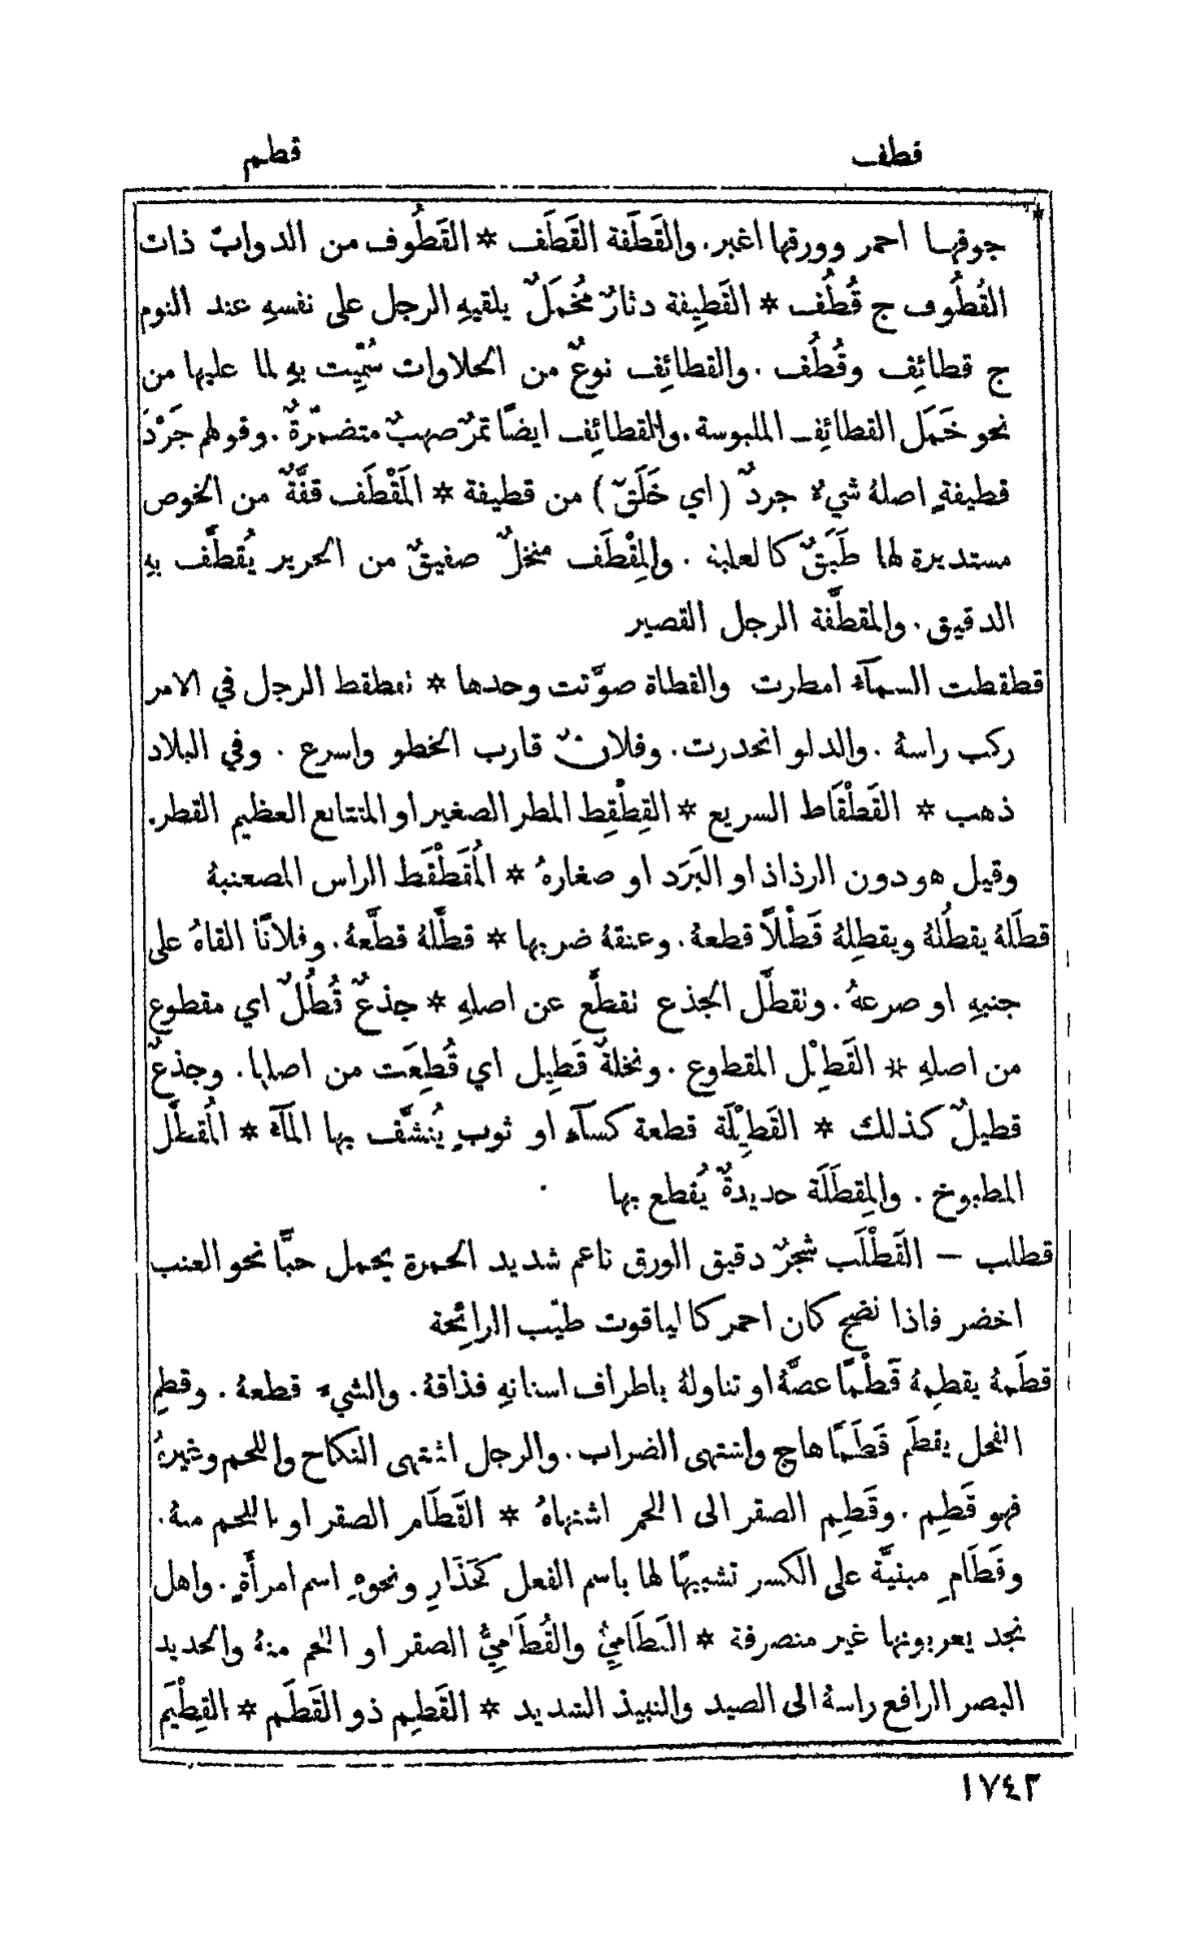 قطف
قطم
جوفها احمر وورقها اغبر. والقَطَفة القَطَف * القَطُوف من الدوابّ ذات
القُطُوف ج قُطُف * القَطِيفة دثارٌ مُخمَلٌ يلقيهِ الرجل على نفسهِ عند النوم
ج قطائِف وقُطُف. والقطائِف نوعٌ من الحلاوات سُمّيت بهِ لما عليها من
نحو خَمَل القطائِف الملبوسة. والقطائِف ايضًا تمرٌ صهبٌ متضمّرةٌ. وقولهم جَرْدَ
قطيفةٍ اصلهُ شيءٌ جردٌ (اي خَلَقٌ) من قطيفة * المَقْطَف قفَّةٌ من الخوص
مستديرة لها طَبَقٌ كالعلبة. والمِقْطَف منخلٌ صفيقٌ من الحرير يُقطَّف بهِ
الدقيق. والمقطَّفة الرجل القصير
قطقطت السمآءُ امطرت والقطاة صوَّتت وحدها * تقطقط الرجل في الامر
ركب راسهُ. والدلو انحدرت. وفلانٌ قارب الخطو واسرع. وفي البلاد
ذهب * القَطْقَاط السريع * القِطْقِط المطر الصغير او المتتابع العظيم القطر.
وقيل هو دون الرذاذ او البَرَد او صغارهُ * المُقَطْقَط الراس المصعنبهُ
قطَلهُ يقطُلهُ ويقطِلهُ قَطْلًا قطعهُ. وعنقهُ ضربها * قطَّلهُ قطَّعهُ. وفلانًا القاهُ على
جنبهِ او صرعهُ. وتقطَّل الجذع تقطَّع عن اصلهِ * جذعٌ قُطُلٌ اي مقطوع
من اصلهِ * القَطِيْل المقطوع. ونخلةٌ قَطِيل اي قُطِعَت من اصلها. وجذعٌ
قطيلٌ كذلك * القَطِيْلَة قطعة كسآءٍ او ثوبٍ يُنشَّف بها المآءُ * المُقطَّل
المطبوخ. والمِقطَلَة حديدةٌ يُقطع بها
قطلب – القَطْلَب شجرٌ دقيق الورق ناعم شديد الحمرة يحمل حبًّا نحو العنب
اخضر فاذا نضج كان احمر كالياقوت طيّب الرائحة
قطَمهُ يقطِمهُ قَطْمًا عضَّهُ او تناولهُ باطراف اسنانهِ فذاقهُ. والشيءَ قطعهُ. وقطِم
الفحل يقطَم قَطَمًا هاج واشتهى الضراب. والرجل اشتهى النكاح واللحم وغيرهُ
فهو قَطِم. وقَطِم الصقر الى اللحم اشتهاهُ * القَطَام الصقر او اللحم منهُ.
وقَطَامِ مبنيَّة على الكسر تشبيهًا لها باسم الفعل كحَذَارِ ونحوهِ اسم امرأَةٍ. واهل
نجد يعربونها غير منصرفة * القَطَاميُّ والقُطَاميُّ الصقر او اللحم منهُ والحديد
البصر الرافع راسهُ الى الصيد والنبيذ الشديد * القَطِم ذو القَطَم * القِطْيَم
١٧٤٢